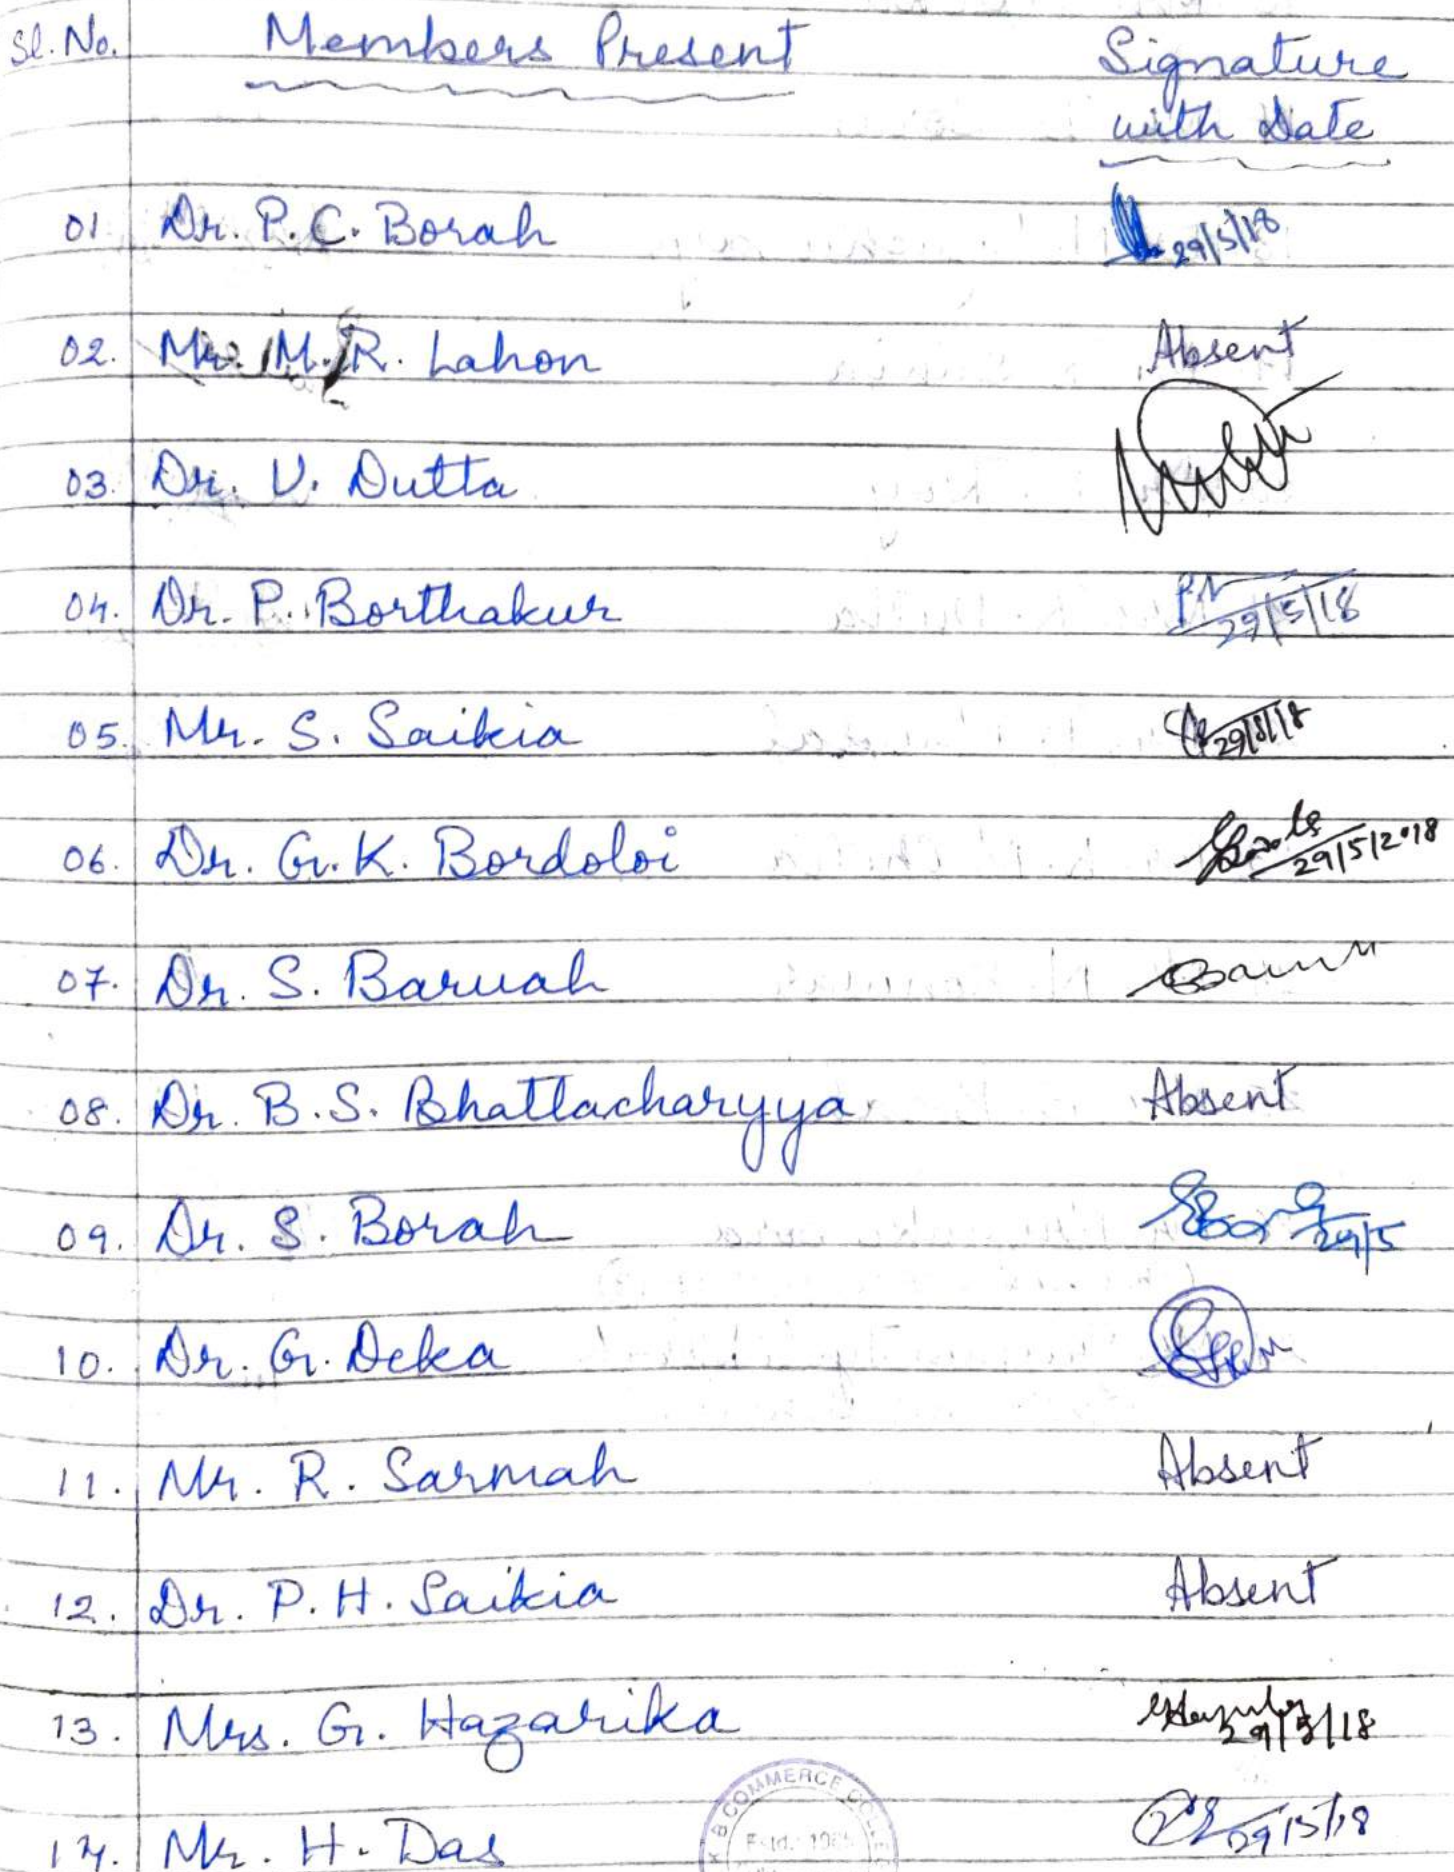 Sl. No. Members Present Signature
with Date
01 Dr. P.C. Borah 29/5/18
02. Mr. M. R. Lahon Absent
03. Dr. U. Dutta
04. Dr. P. Borthakur 29/5/18
05. Mr. S. Saikia 29/5/18
06. Dr. G. K. Bordoloi 29/5/2018
07. Dr. S. Baruah
08. Dr. B. S. Bhattacharyya Absent
09. Dr. S. Borah 29/5
10. Dr. G. Deka
11. Mr. R. Sarmah Absent
12. Dr. P. H. Saikia Absent
13. Mrs. G. Hazarika 29/5/18
14. Mr. H. Das 29/5/18
K B COMMERCE COLLEGE
Estd.: 198